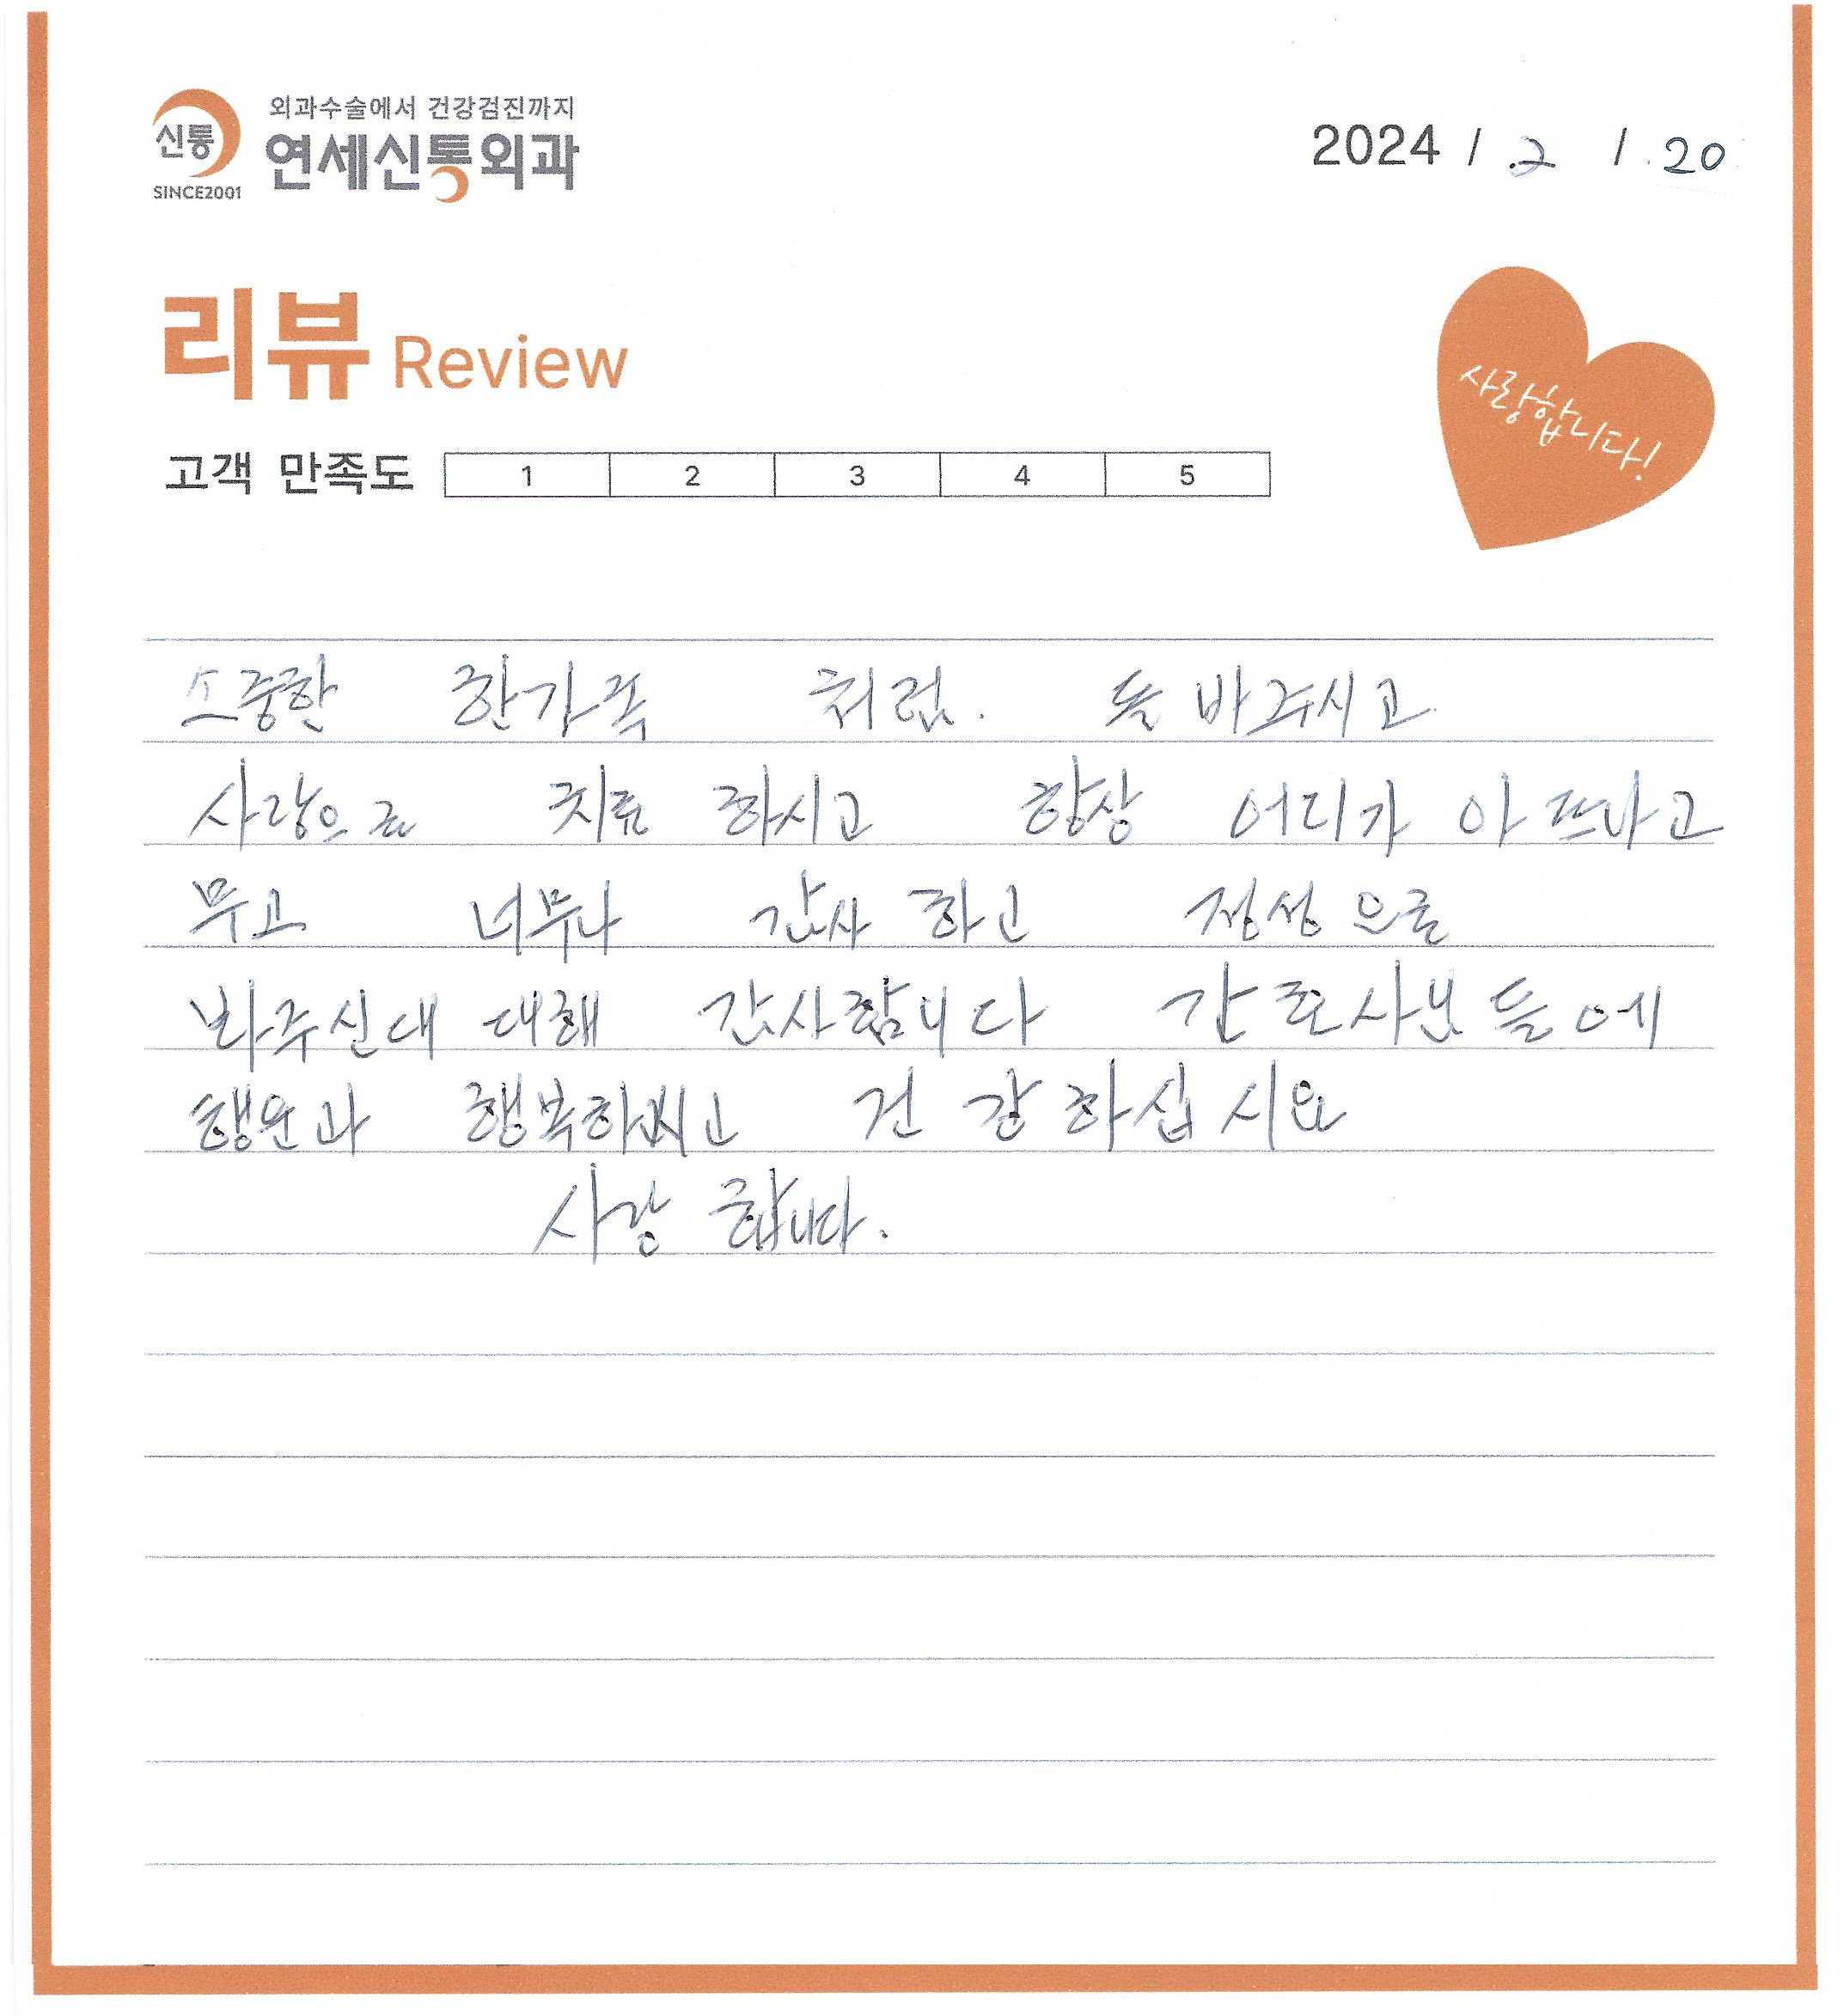 신통
SINCE2001
외과수술에서 건강검진까지
연세신통외과
2024 / .2 / .20
리뷰 Review
사랑합니다!
고객 만족도 1 2 3 4 5
소중한 한가족 처럼. 돌바주시고
사랑으로 치료 하시고 항상 어디가 아프냐고
무고 너무나 감사 하고 정성으로
봐주신대 대해 감사함니다 간호사님들에
행운과 행복하시고 건강하십시요
사랑 합니다.